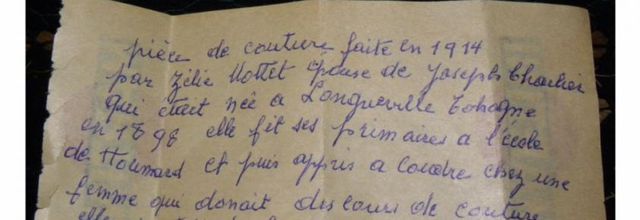 pièce de couture faite en 1914
par Zélie Hottet épouse de Joseph Charlier
qui était née a Longueville Tohogne
en 1898 elle fit ses primaires a l'école
de Houmard et puis appris a coudre chez une
femme qui donait des cours de couture
elle